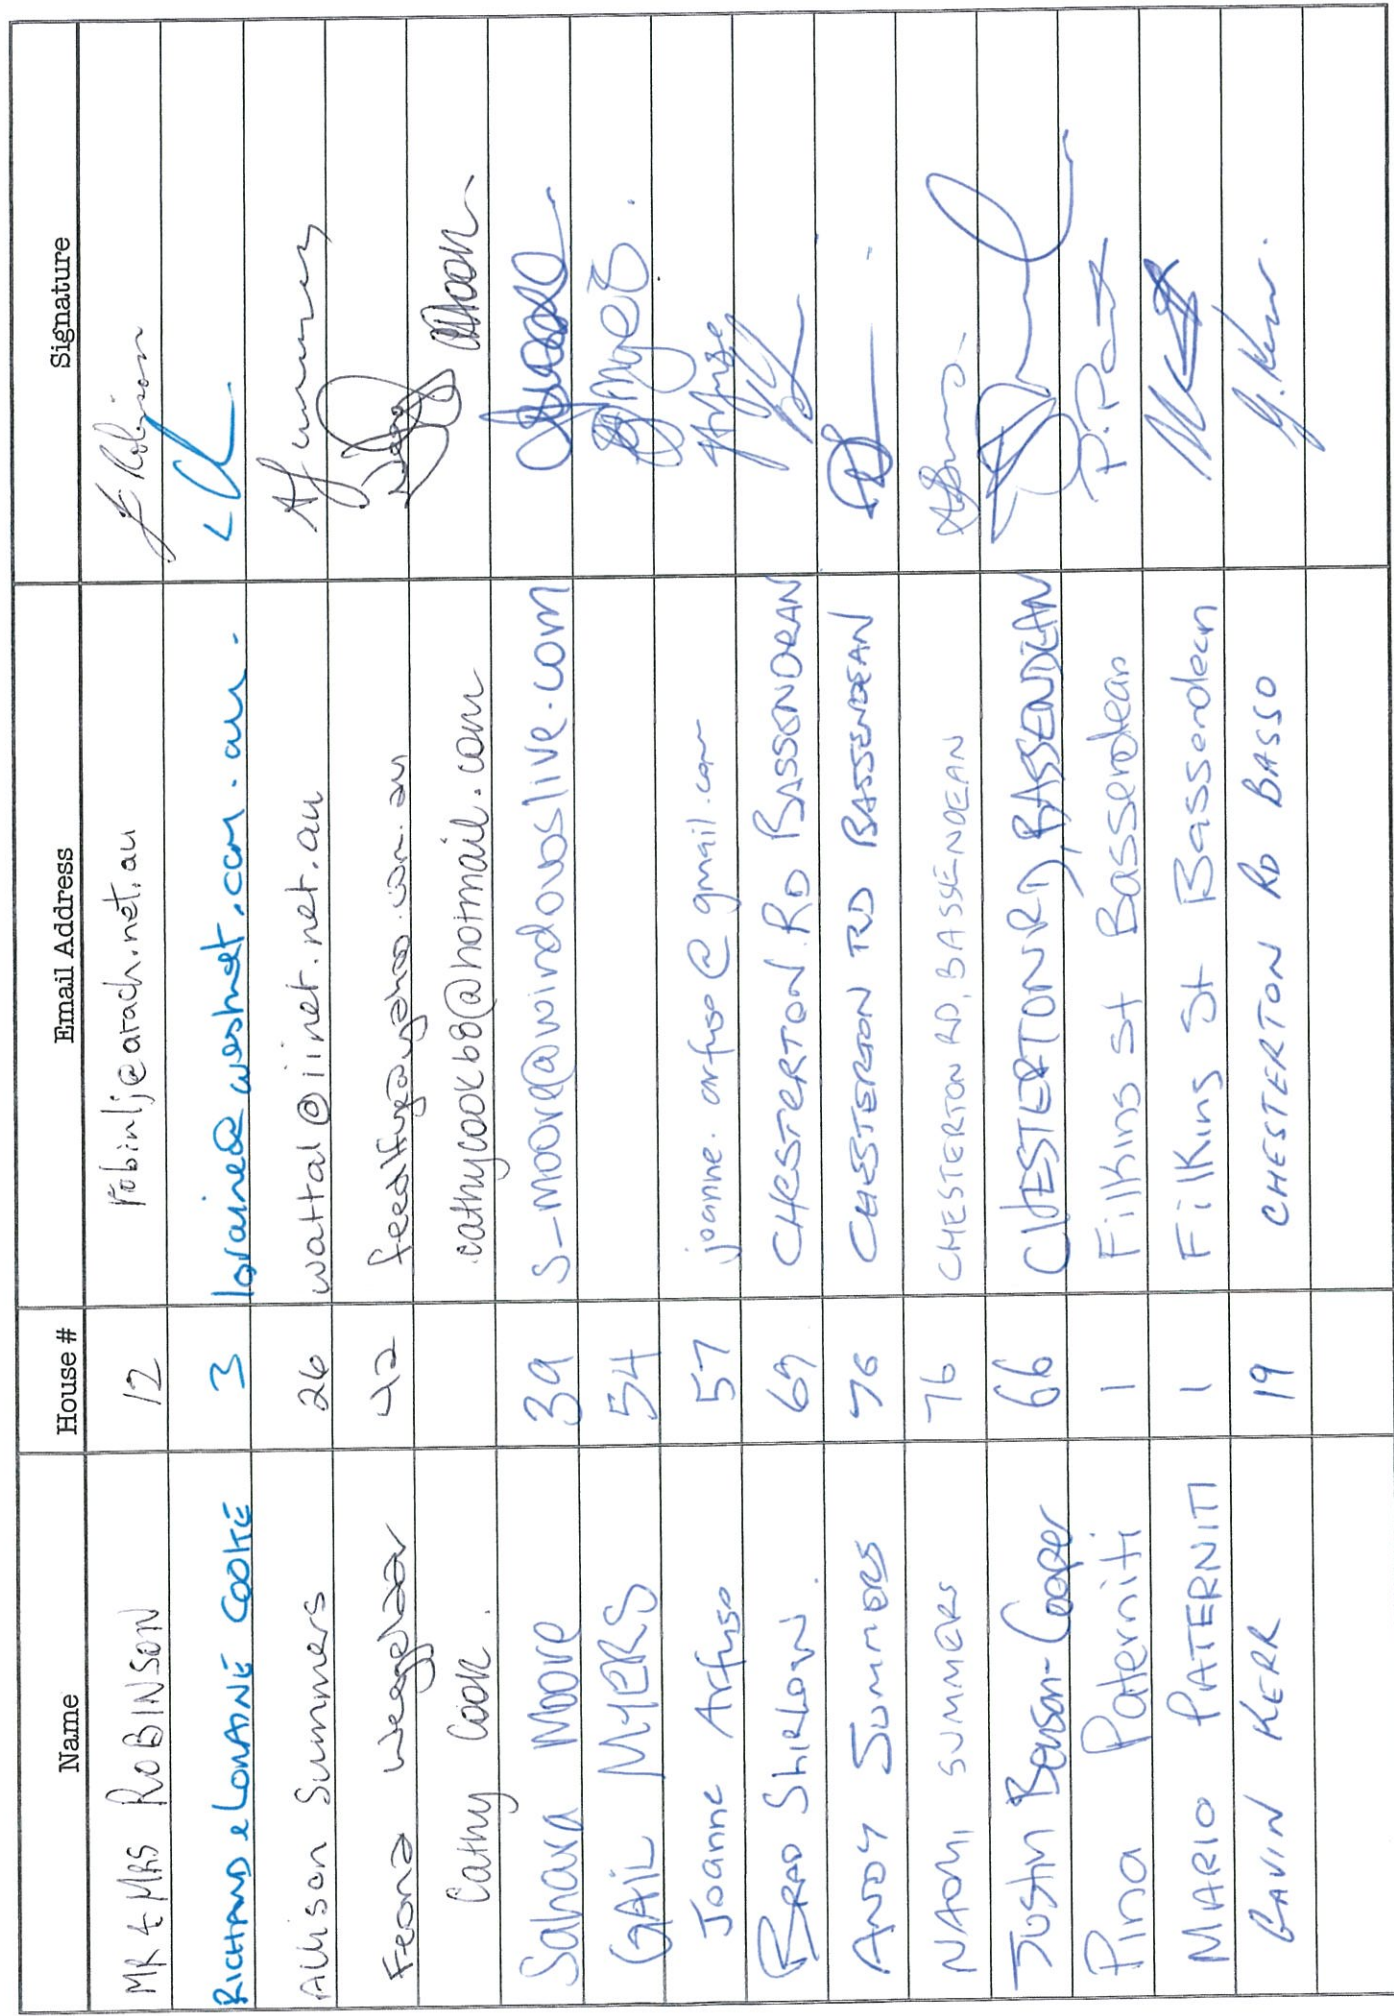 Name House # Email Address Signature
MR & MRS ROBINSON 12 robinlj@arach.net.au Robinson
RICHARD & LORAINE COOKE 3 loraine@westnet.com.au.
Allison Summers 26 wattal@iinet.net.au ASummers
Feona 42
Cathy Cook. cathycook68@hotmail.com
Sahara Moore 39 S-moore@windowslive.com
GAIL MYERS 54 GMyers.
Joanne Arfuso 57 joanne.arfuso@gmail.com
BRAD SHIRLAW. 69 CHESTERTON RD BASSENDEAN
ANDY SUMMERS 76 CHESTERTON RD BASSENDEAN
NAOMI SUMMERS 76 CHESTERTON RD, BASSENDEAN
JUSTIN Benson-Cooper 66 CHESTERTON RD, BASSENDEAN
Pina Paterniti 1 Filkins St Bassendean
MARIO PATERNITI 1 Filkins St Bassendean
GAVIN KERR 19 CHESTERTON RD BASSO G. Kerr.